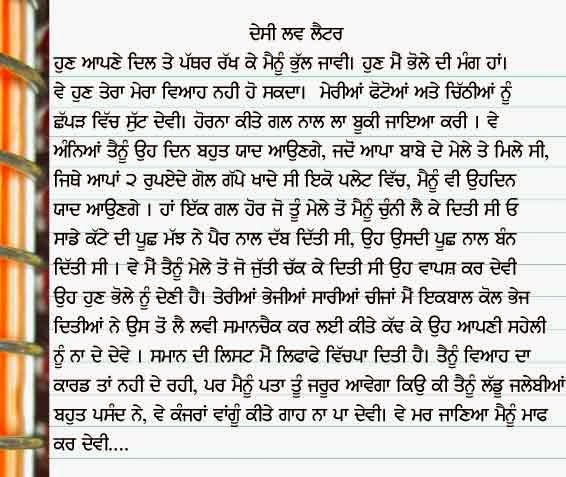 ਦੇਸੀ ਲਵ ਲੈਟਰ
ਹੁਣ ਆਪਣੇ ਦਿਲ ਤੇ ਪੱਥਰ ਰੱਖ ਕੇ ਮੈਨੂੰ ਭੁੱਲ ਜਾਵੀ। ਹੁਣ ਮੈਂ ਭੋਲੇ ਦੀ ਮੰਗ ਹਾਂ।
ਵੇ ਹੁਣ ਤੇਰਾ ਮੇਰਾ ਵਿਆਹ ਨਹੀ ਹੋ ਸਕਦਾ। ਮੇਰੀਆਂ ਫੋਟੋਆਂ ਅਤੇ ਚਿੱਠੀਆਂ ਨੂੰ
ਛੱਪੜ ਵਿੱਚ ਸੁੱਟ ਦੇਵੀ। ਹੋਰਨਾ ਕੀਤੇ ਗਲ ਨਾਲ ਲਾ ਬੂਕੀ ਜਾਇਆ ਕਰੀ । ਵੇ
ਅੰਨਿਆਂ ਤੈਨੂੰ ਉਹ ਦਿਨ ਬਹੁਤ ਯਾਦ ਆਉਣਗੇ, ਜਦੋਂ ਆਪਾ ਬਾਬੇ ਦੇ ਮੇਲੇ ਤੇ ਮਿਲੇ ਸੀ,
ਜਿਥੇ ਆਪਾਂ ੨ ਰੁਪਏਦੇ ਗੋਲ ਗੱਪੇ ਖਾਦੇ ਸੀ ਇਕੋ ਪਲੇਟ ਵਿੱਚ, ਮੈਨੂੰ ਵੀ ਉਹਦਿਨ
ਯਾਦ ਆਉਣਗੇ । ਹਾਂ ਇੱਕ ਗਲ ਹੋਰ ਜੋ ਤੂੰ ਮੇਲੇ ਤੋਂ ਮੈਨੂੰ ਚੁੰਨੀ ਲੈ ਕੇ ਦਿਤੀ ਸੀ ਓ
ਸਾਡੇ ਕੱਟੇ ਦੀ ਪੂਛ ਮੱਝ ਨੇ ਪੈਰ ਨਾਲ ਦੱਬ ਦਿੱਤੀ ਸੀ, ਉਹ ਉਸਦੀ ਪੂਛ ਨਾਲ ਬੰਨ
ਦਿੱਤੀ ਸੀ । ਵੇ ਮੈਂ ਤੈਨੂੰ ਮੇਲੇ ਤੋਂ ਜੋ ਜੁੱਤੀ ਚੱਕ ਕੇ ਦਿਤੀ ਸੀ ਉਹ ਵਾਪਸ਼ ਕਰ ਦੇਵੀ
ਉਹ ਹੁਣ ਭੋਲੇ ਨੂੰ ਦੇਣੀ ਹੈ। ਤੇਰੀਆਂ ਭੇਜੀਆਂ ਸਾਰੀਆਂ ਚੀਜਾਂ ਮੈਂ ਇਕਬਾਲ ਕੋਲ ਭੇਜ
ਦਿਤੀਆਂ ਨੇ ਉਸ ਤੋਂ ਲੈ ਲਵੀ ਸਮਾਨਚੈਕ ਕਰ ਲਈ ਕੀਤੇ ਕੱਢ ਕੇ ਉਹ ਆਪਣੀ ਸਹੇਲੀ
ਨੂੰ ਨਾ ਦੇ ਦੇਵੇ । ਸਮਾਨ ਦੀ ਲਿਸਟ ਮੈਂ ਲਿਫਾਫੇ ਵਿੱਚਪਾ ਦਿਤੀ ਹੈ। ਤੈਨੂੰ ਵਿਆਹ ਦਾ
ਕਾਰਡ ਤਾਂ ਨਹੀ ਦੇ ਰਹੀ, ਪਰ ਮੈਨੂੰ ਪਤਾ ਤੂੰ ਜਰੂਰ ਆਵੇਗਾ ਕਿਉ ਕੀ ਤੈਨੂੰ ਲੱਡੂ ਜਲੇਬੀਆਂ
ਬਹੁਤ ਪਸੰਦ ਨੇ, ਵੇ ਕੰਜਰਾਂ ਵਾਂਗੂੰ ਕੀਤੇ ਗਾਹ ਨਾ ਪਾ ਦੇਵੀ। ਵੇ ਮਰ ਜਾਣਿਆ ਮੈਨੂੰ ਮਾਫ
ਕਰ ਦੇਵੀ....